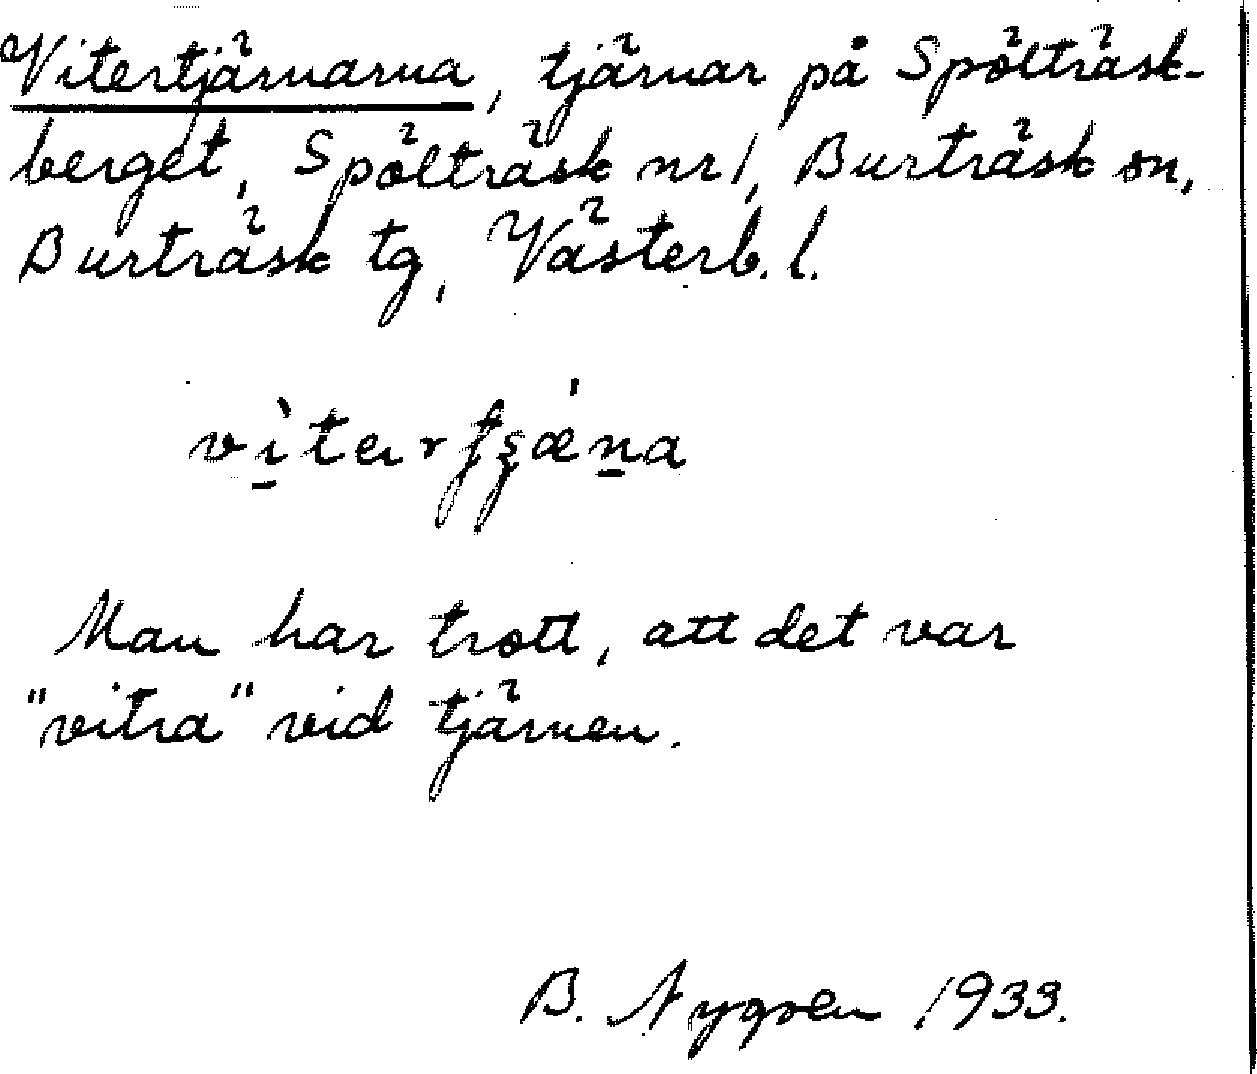 Vitertjärnarna, tjärnar på Spölträsk-
berget, Spölträsk nr 1, Burträsk sn,
Burträsk tg, Västerb. l.
Man har trott, att det var
"vitra" vid tjärnen.
B. Nygren 1933.